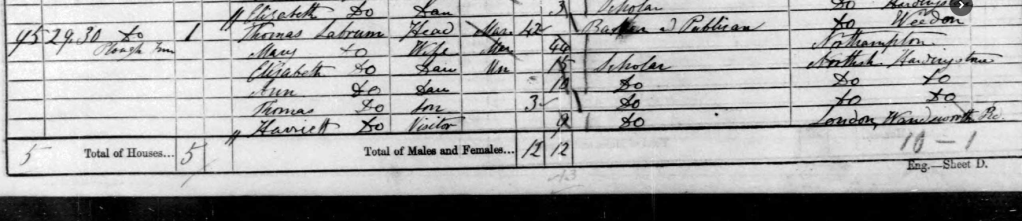 " Elizabeth Do Dau 3 Scholar Do Hardingstone
95 29.30 Do 1 Thomas Labrum Head Mar 42 Baker & Publican Do Weedon
Plough Inn Mary Do Wife Mar 44 Northampton
Elizabeth Do Dau Un 15 Scholar North Hardingstone
Ann Do Dau 10 Do Do Do
Thomas Do Son 3 Do Do Do
" Harriett Do Visitor 9 Do London, Wandsworth Rd.
5 Total of Houses... 5 Total of Males and Females... 12 12
10 - 1
Eng.—Sheet D.